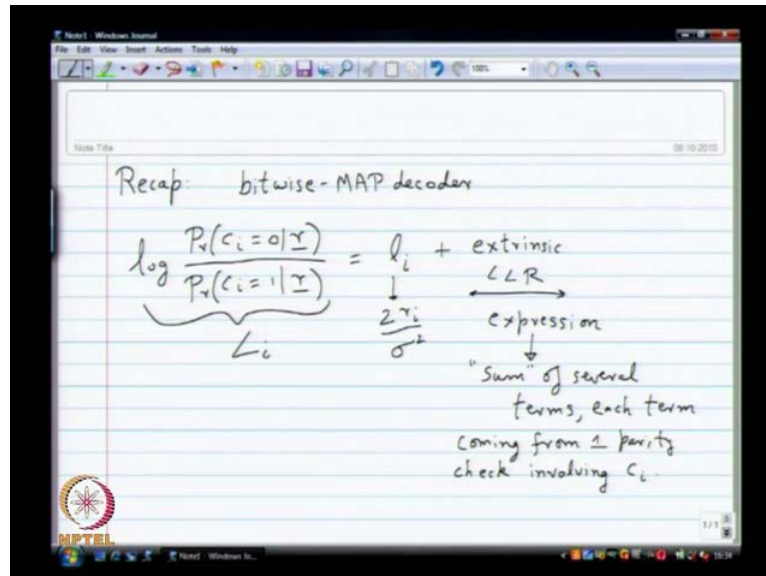 Note1 - Windows Journal
File Edit View Insert Actions Tools Help
100%
Note Title
08-10-2010
Recap: bitwise-MAP decoder
log Pr(c_i = 0 | r) / Pr(c_i = 1 | r) = l_i + extrinsic
LLR
L_i
2 r_i / σ²
expression
"sum" of several
terms, each term
coming from 1 parity
check involving c_i.
1/1
NPTEL
Note1 - Windows Jo...
16:34